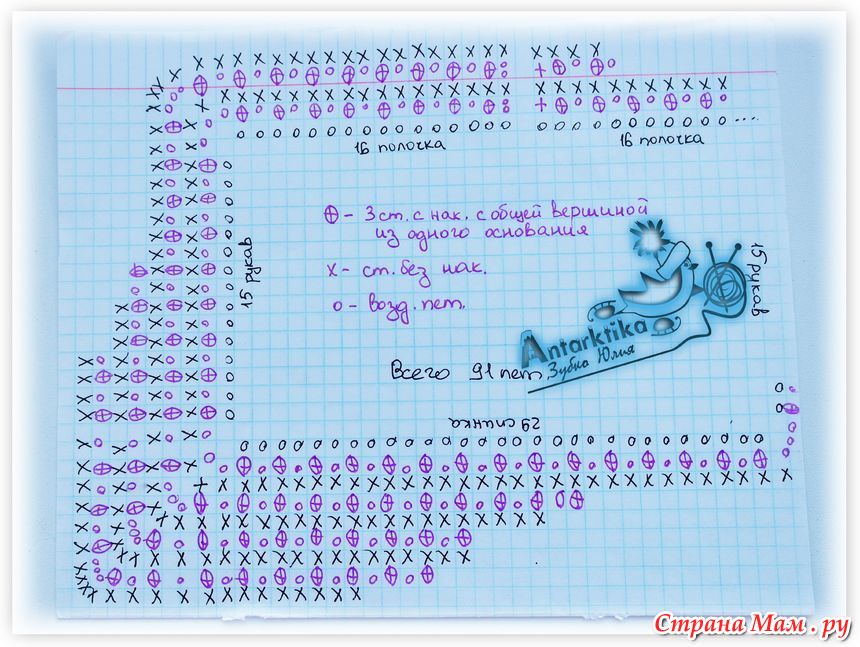 16 полочка
16 полочка
15 рукав
⊕ - 3 ст. с нак. с общей вершиной
из одного основания
x - ст. без нак.
o - возд. пет.
15 рукав
Antarktika
Зубко Юлия
Всего 91 пет.
29 спинка
Страна Мам . ру